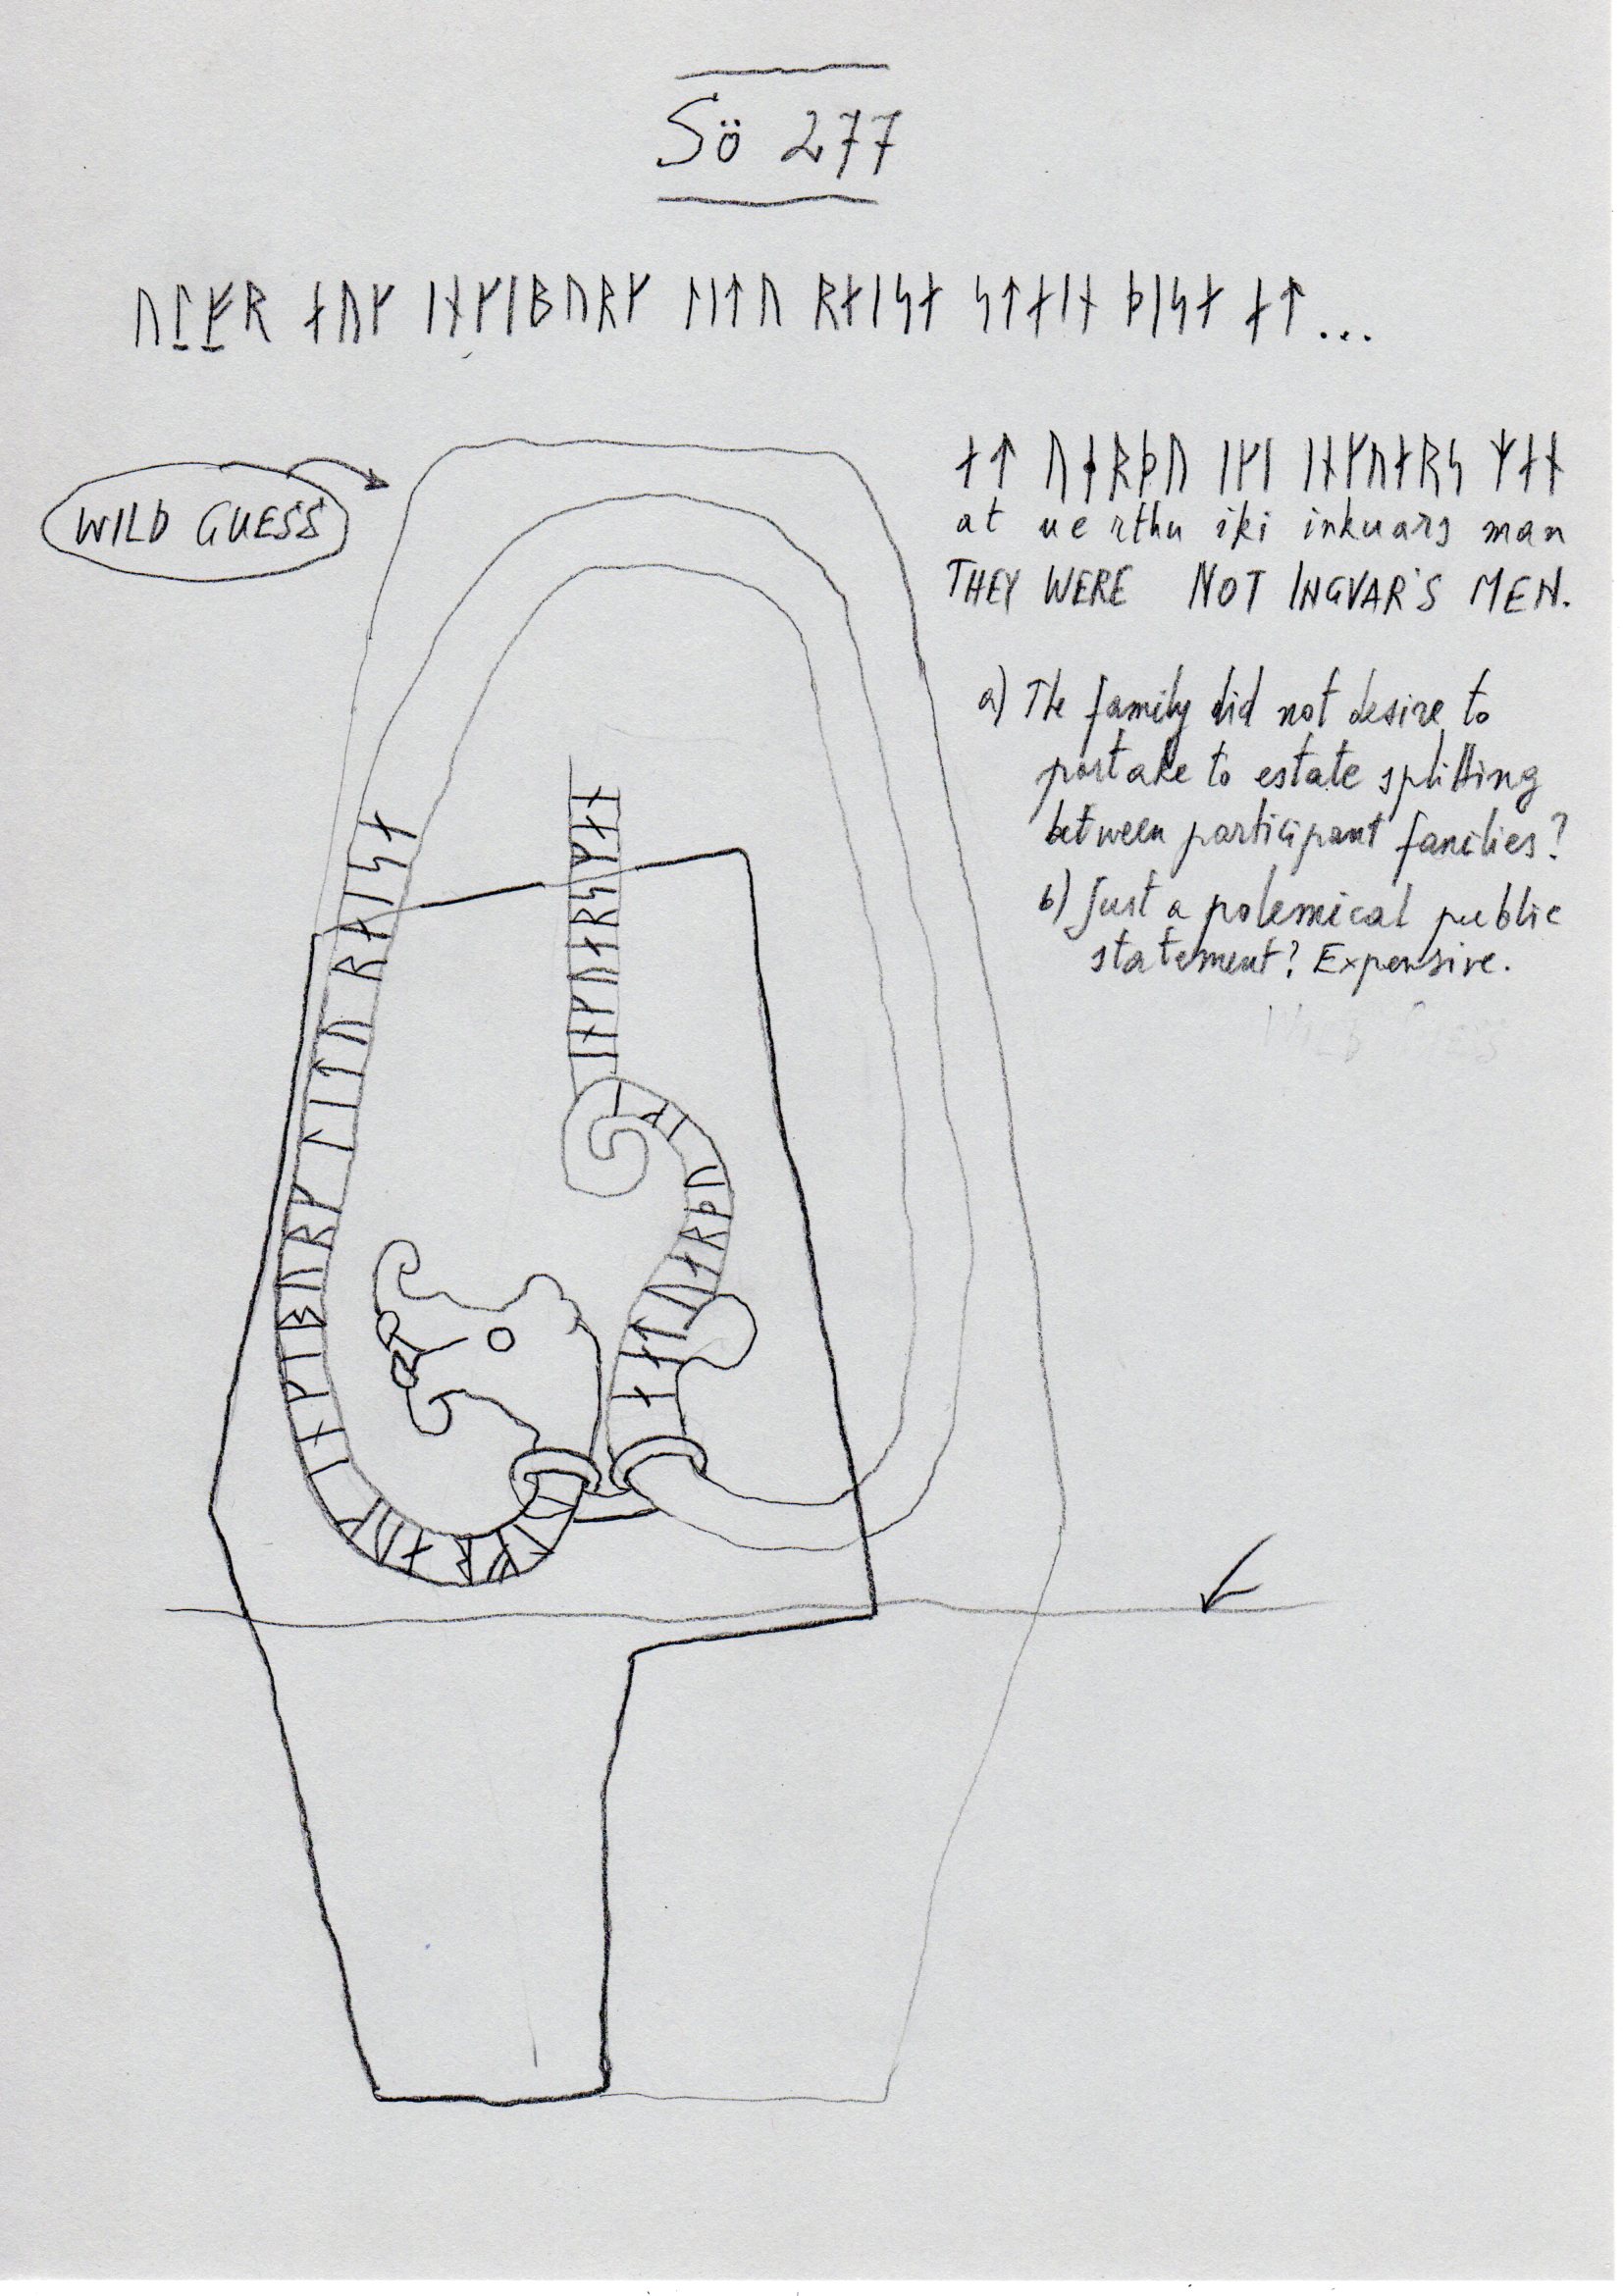 Sö 277
ᚢᛚᚠᚱ ᛅᚢᚴ ᛁᚾᚴᛁᛒᚢᚱᚴ ᛚᛁᛏᚢ ᚱᛅᛁᛋᛅ ᛋᛏᛅᛁᚾ ᚦᛁᛋᛅ ᛅᛏ...
WILD GUESS
ᛅᛏ ᚢᛂᚱᚦᚢ ᛁᚴᛁ ᛁᚾᚴᚢᛅᚱᛋ ᛘᛅᚾ
at ue rthu iki inkuars man
THEY WERE NOT INGVAR'S MEN.
a) The family did not desire to
partake to estate splitting
between participant families?
b) Just a polemical public
statement? Expensive.
ᚠᚱ ᛅᚢᚴ ᛁᚾᚴᛁᛒᚢᚱᚴ ᛚᛁᛏᚢ ᚱᛅᛁᛋᛅ
ᛁᚾᚴᚢᛅᚱᛋᛘᛅᚾ